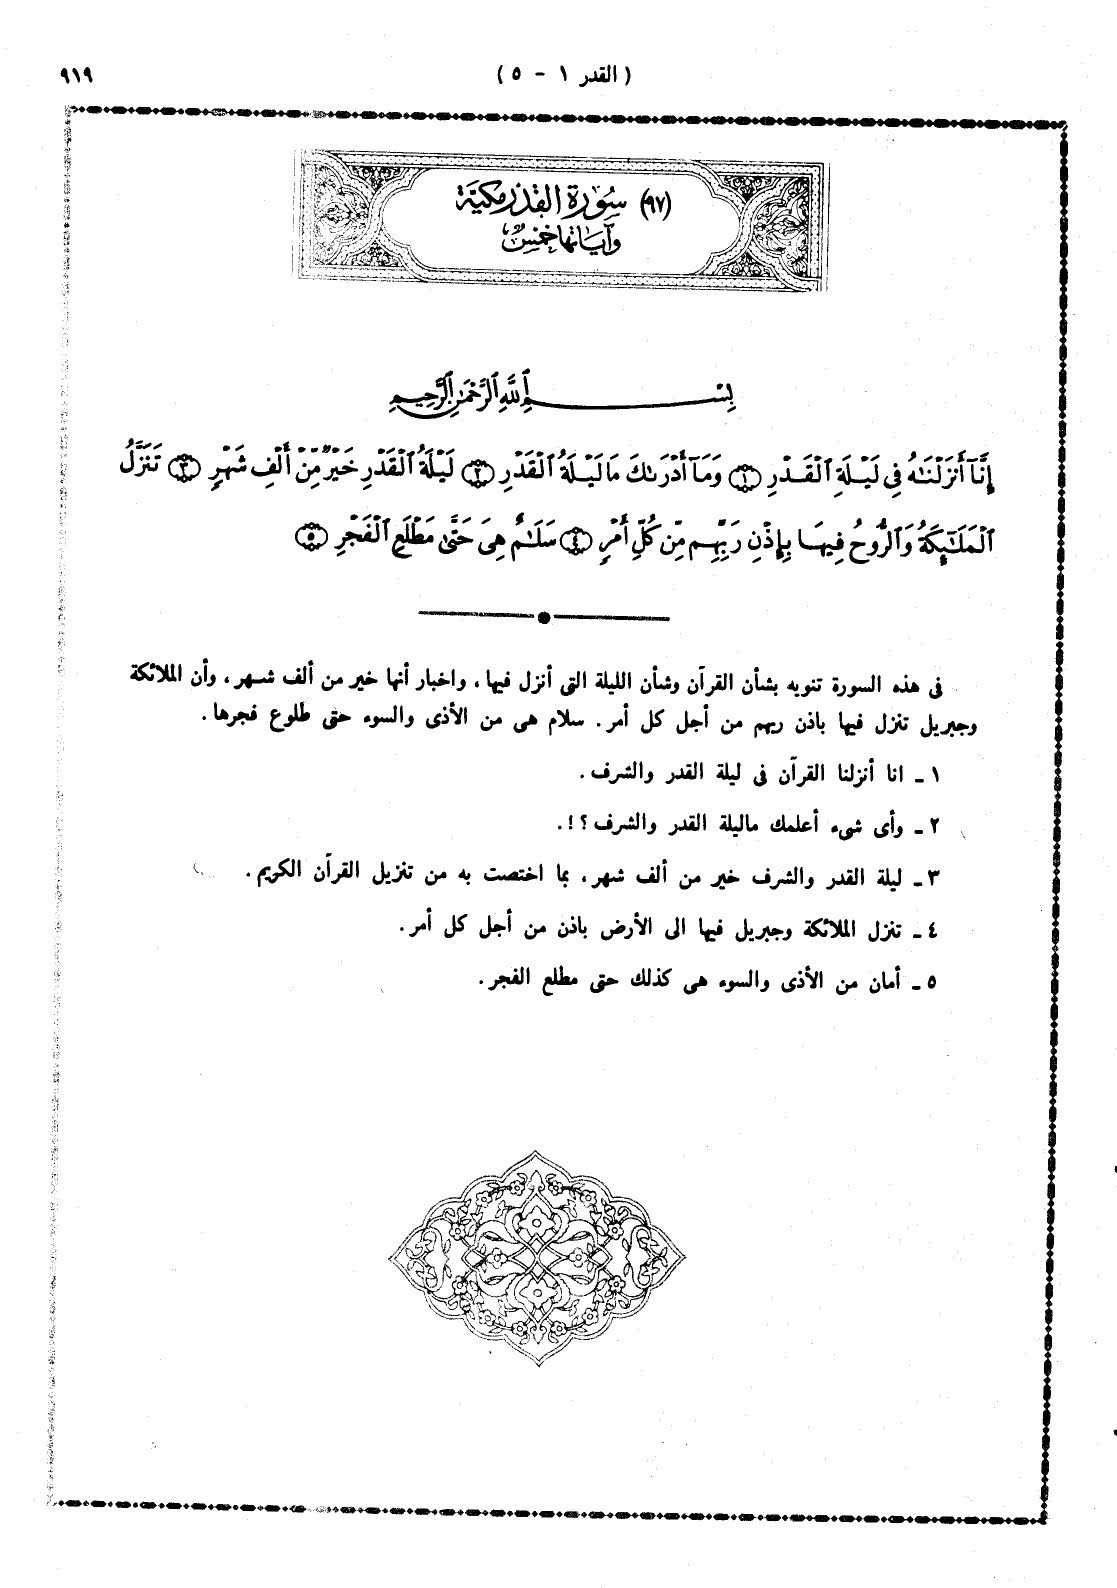 ( القدر ١ - ٥ )
٩١٩
(٩٧) سُورَةِ القَدْرِ مَكِيَّة
وَآيَاتُهَا خَمْسٌ
بِسْمِ ٱللَّهِ ٱلرَّحْمَٰنِ ٱلرَّحِيمِ
إِنَّآ أَنزَلْنَٰهُ فِى لَيْلَةِ ٱلْقَدْرِ ۝١ وَمَآ أَدْرَىٰكَ مَا لَيْلَةُ ٱلْقَدْرِ ۝٢ لَيْلَةُ ٱلْقَدْرِ خَيْرٌ مِّنْ أَلْفِ شَهْرٍ ۝٣ تَنَزَّلُ
ٱلْمَلَٰٓئِكَةُ وَٱلرُّوحُ فِيهَا بِإِذْنِ رَبِّهِم مِّن كُلِّ أَمْرٍ ۝٤ سَلَٰمٌ هِىَ حَتَّىٰ مَطْلَعِ ٱلْفَجْرِ ۝٥
فى هذه السورة تنويه بشأن القرآن وشأن الليلة التى أنزل فيها ، واخبار أنها خير من ألف شهر ، وأن الملائكة
وجبريل تنزل فيها باذن ربهم من أجل كل أمر . سلام هى من الأذى والسوء حتى طلوع فجرها .
١ ـ انا أنزلنا القرآن فى ليلة القدر والشرف .
٢ ـ وأى شىء أعلمك ماليلة القدر والشرف ؟ ! .
٣ ـ ليلة القدر والشرف خير من ألف شهر ، بما اختصت به من تنزيل القرآن الكريم .
٤ ـ تنزل الملائكة وجبريل فيها الى الأرض باذن من أجل كل أمر .
٥ ـ أمان من الأذى والسوء هى كذلك حتى مطلع الفجر .